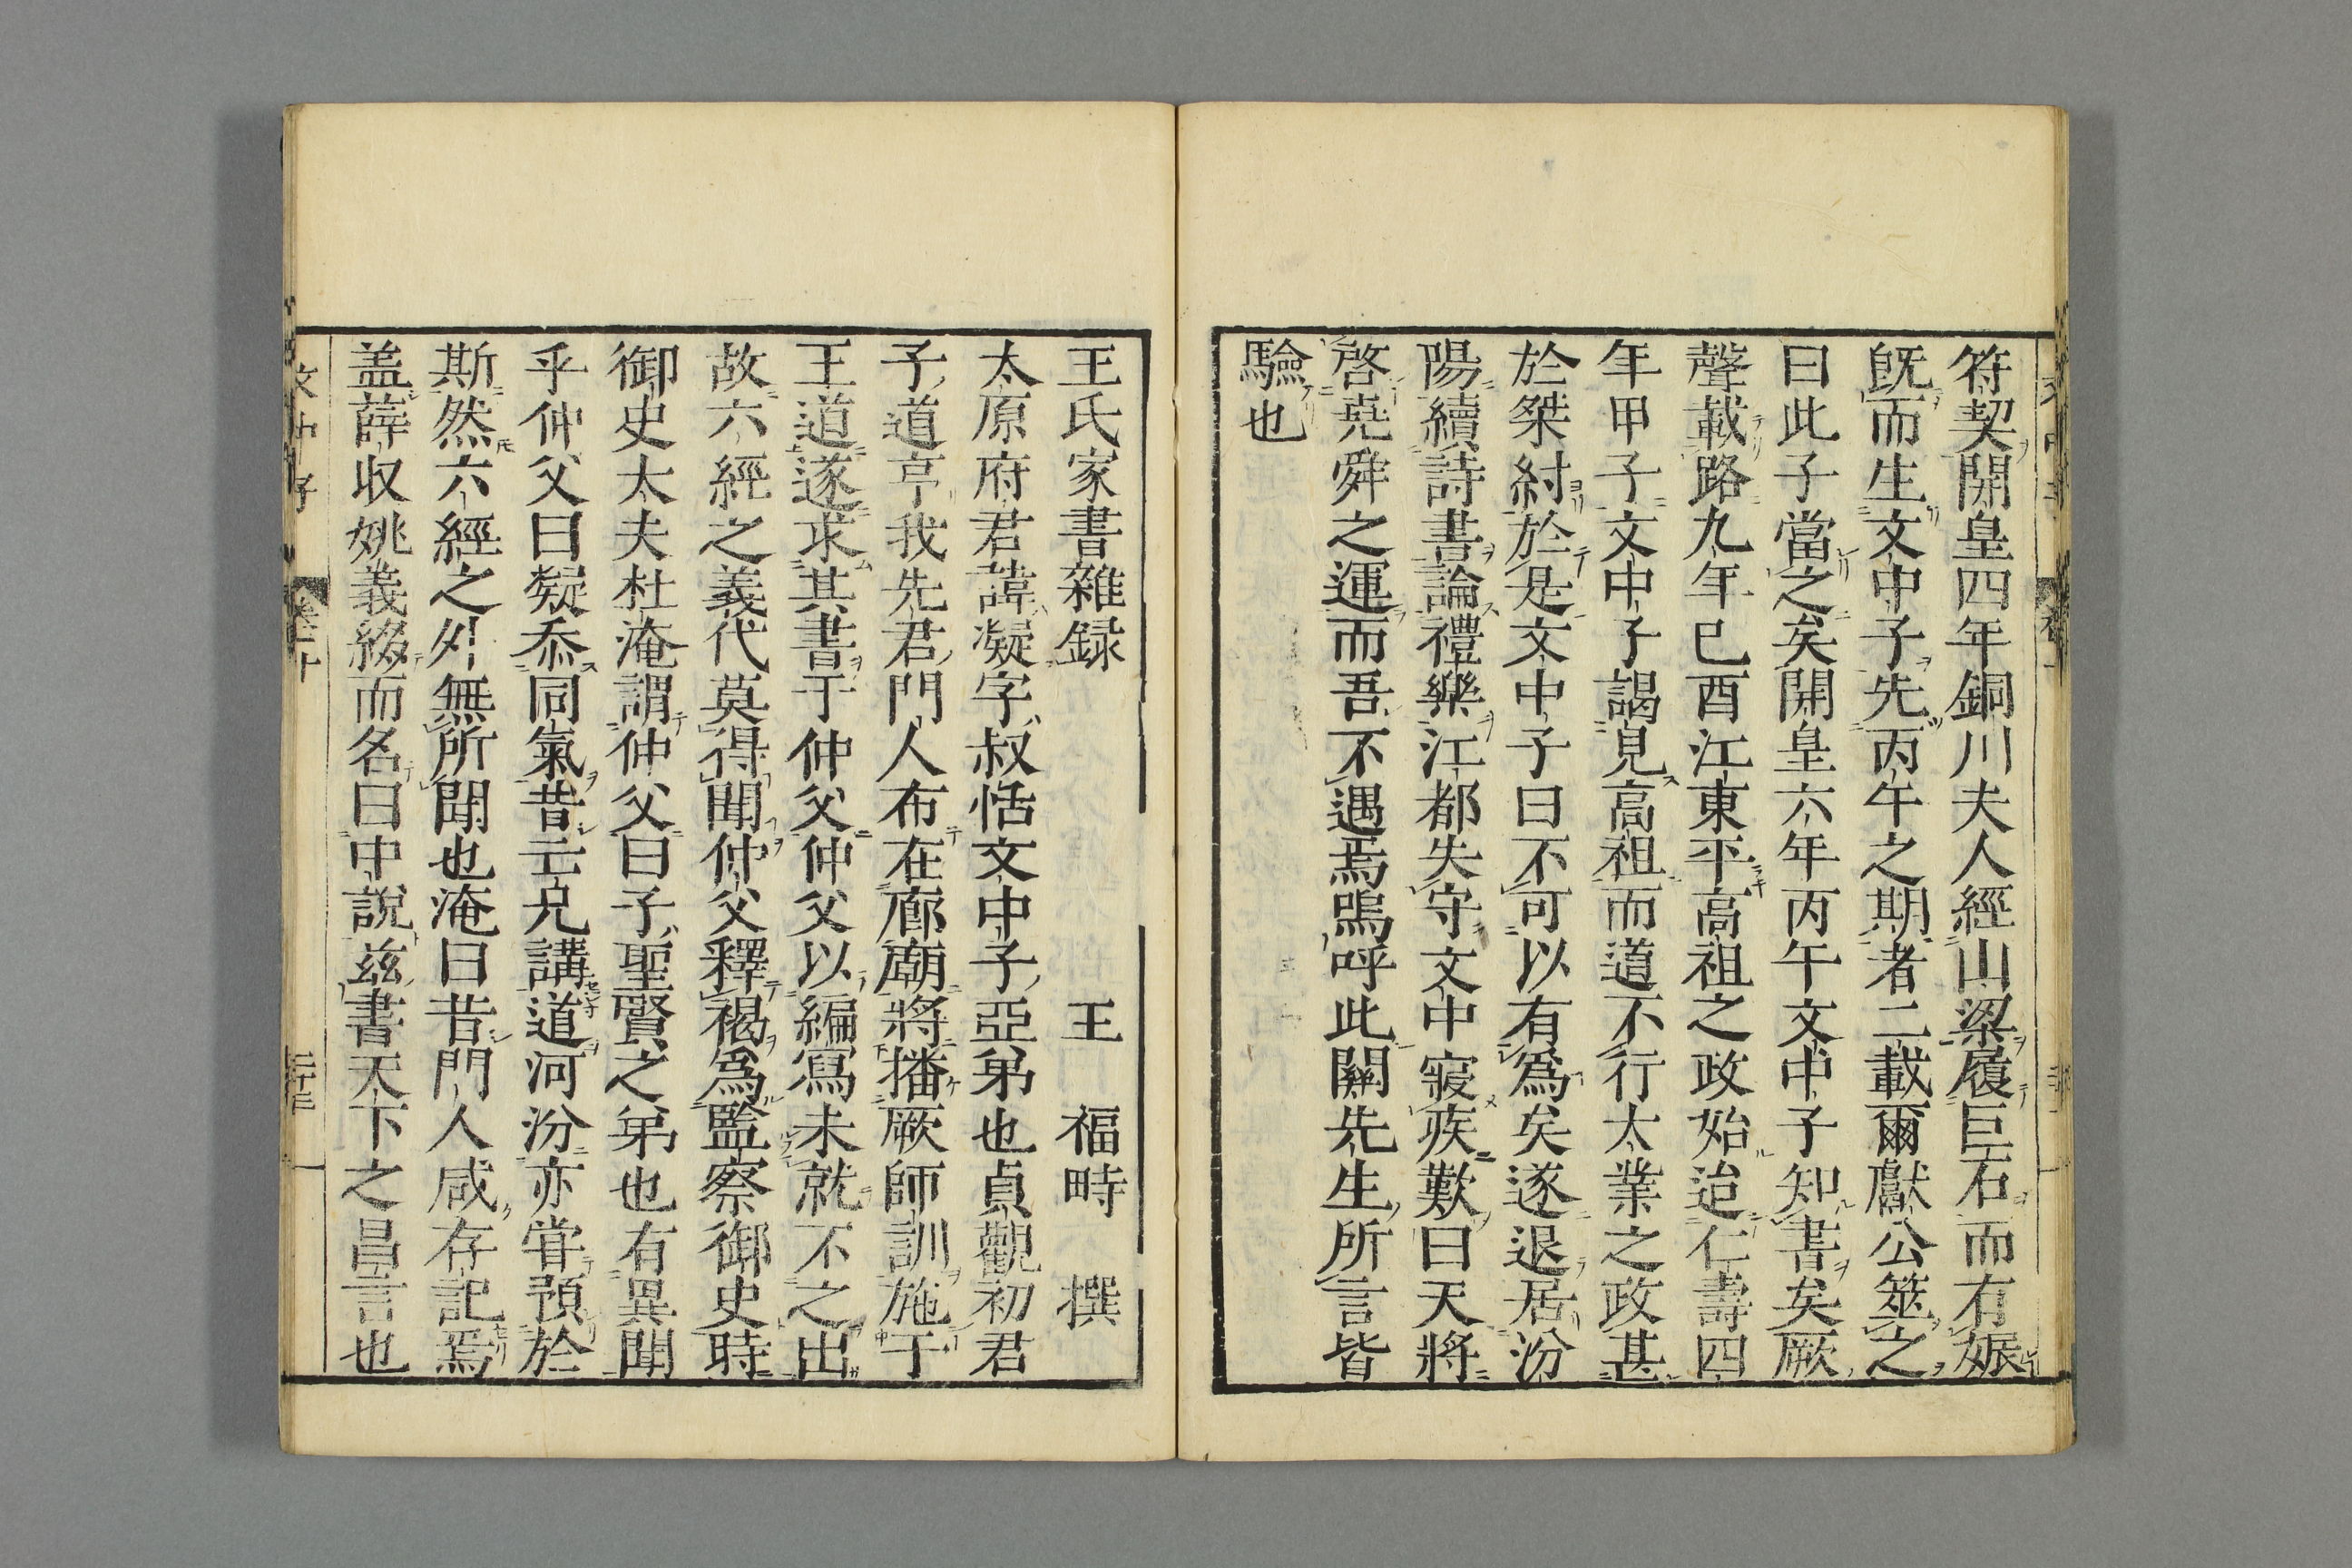 符契開皇四年銅川夫人經山梁履巨石而有娠
旣而生文中子先丙午之期者二載爾獻公筮之
曰此子當之矣開皇六年丙午文中子知書矣厥
聲載路九年己酉江東平高祖之政始迨仁壽四
年甲子文中子謁見高祖而道不行大業之政甚
於桀紂於是文中子曰不可以有爲矣遂退居汾
陽續詩書論禮樂江都失守文中寢疾歎曰天將
啓堯舜之運而吾不遇焉嗚呼此關先生所言皆
驗也
王氏家書雜録　王　福畤　撰
太原府君諱凝字叔恬文中子亞弟也貞觀初君
子道亨我先君門人布在廊廟將播厥師訓施于
王道遂求其書于仲父仲父以編寫未就不之出
故六經之義代莫得聞仲父釋褐爲監察御史時
御史大夫杜淹謂仲父曰子聖賢之弟也有異聞
乎仲父曰凝忝同氣昔亡兄講道河汾亦甞預於
斯然六經之外無所聞也淹曰昔門人咸存記焉
盖薛収姚義綴而名曰中說兹書天下之昌言也
文中子
卷之十
二十三